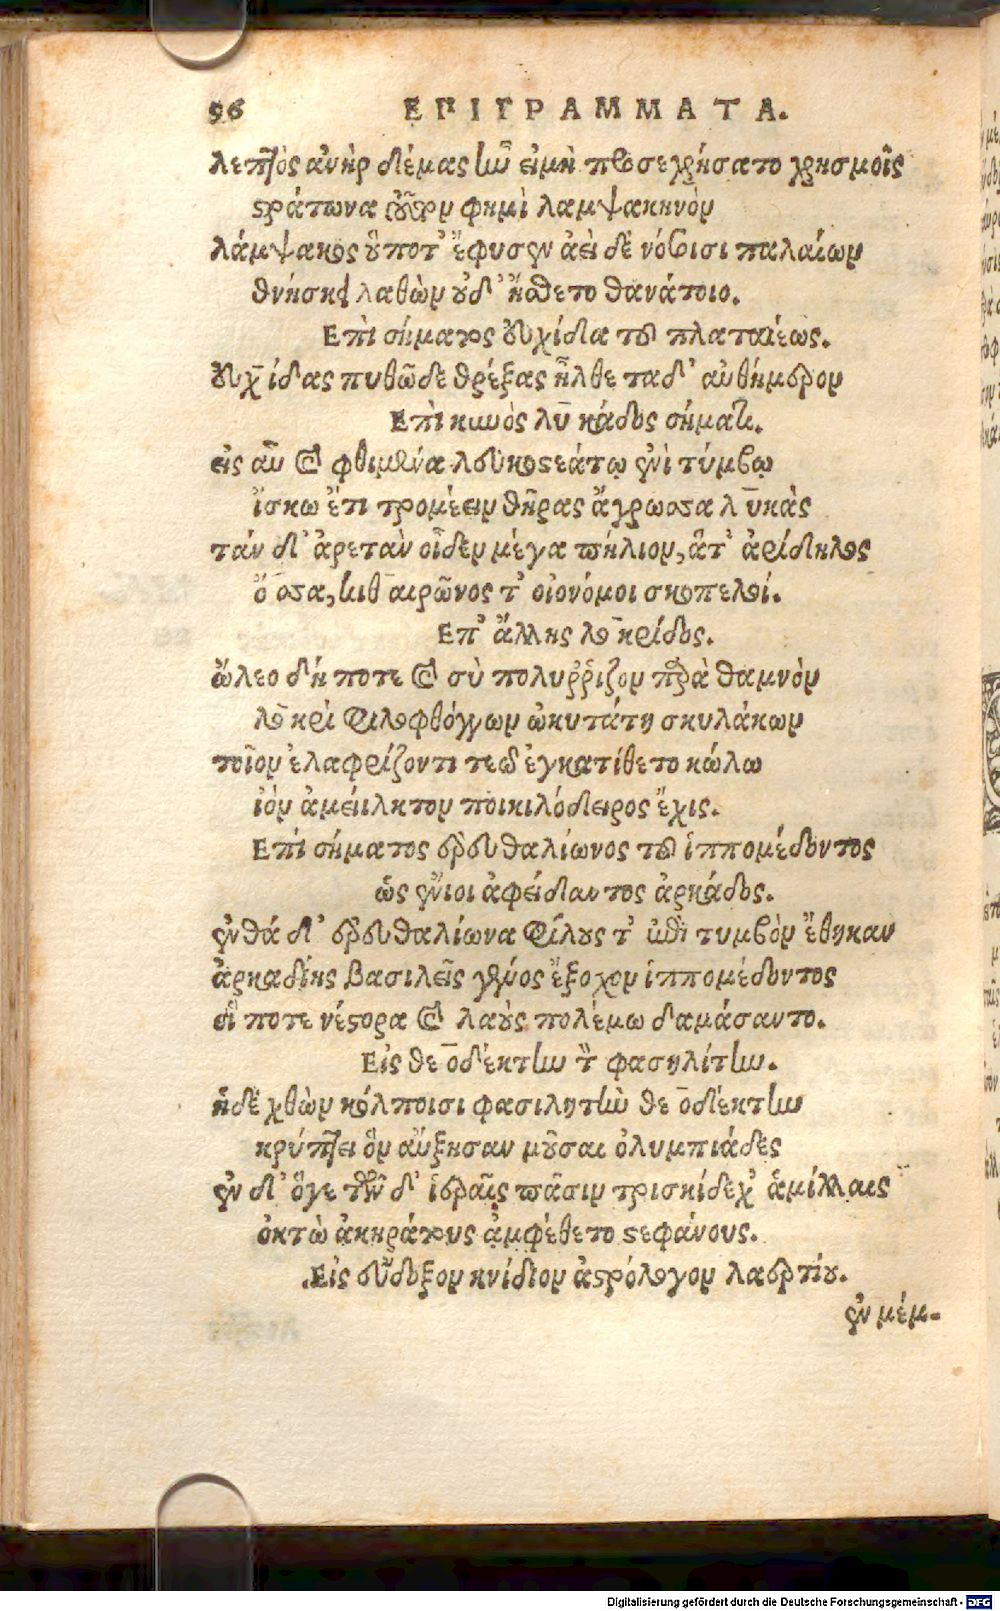 96 ΕΠΙΓΡΑΜΜΑΤΑ.
λεπτὸς ἀνὴρ δέμας ἦν εἰ μὴ προσεχρήσατο χρησμοῖς
στράτωνα οὗτον φημὶ λαμψακηνὸν
λάμψακος ὅν ποτ' ἔφυσεν ἀεὶ δὲ νόσοισι παλαίων
θνήσκει λαθὼν οὐδ' ἤσθετο θανάτοιο.
Επὶ σήματος εὐχίδα τοῦ πλαταιέως.
εὐχίδας πυθῶδε θρέξας ἦλθε ταδ' αὐθήμερον
Επὶ κυνὸς λυκάδος σήματι.
εἰς αὖ καὶ φθιμένα λευκοστεάτῳ ἐνὶ τύμβῳ
ἴσκω ἔτι τρομέειν θῆρας ἄγρωσσα λυκὰς
τάν δ' ἀρετὰν οἶδεν μέγα πήλιον, ἅτ' ἀρίδηλος
ὄσσα, κιθαιρῶνος τ' οἰονόμοι σκοπελοί.
Επ' ἄλλης λοκρίδος.
ὤλεο δή ποτε καὶ σὺ πολυῤῥιζον παρὰ θαμνὸν
λοκρὶ φιλοφθόγγων ὠκυτάτη σκυλάκων
τοῖον ἐλαφρίζοντι τεῷ ἐγκατίθετο κώλω
ἰὸν ἀμείλικτον ποικιλόδειρος ἔχις.
Επὶ σήματος ἐρευθαλίωνος τοῦ ἱππομέδοντος
ὡς ἔνιοι ἀφείδαντος ἀρκάδος.
ἐνθά δ' ἐρευθαλίωνα φίλους τ' ὑπὸ τυμβὸν ἔθηκαν
ἀρκαδίης βασιλεῖς γένος ἔξοχον ἱππομέδοντος
εἴ ποτε νέστορα καὶ λαοὺς πολέμω δαμάσαντο.
Εἰς θεοδέκτην τὸν φασηλίτην.
ἥδε χθὼν κόλποισι φασιλητὴν θεοδέκτην
κρύπτει ὃν αὔξησαν μοῦσαι ὀλυμπιάδες
ἐν δ' ὅγε τῶν δ' ἱεραῖς πᾶσιν τρισκίδεχ' ἁμίλλαις
ὀκτὼ ἀκηράτους ἀμφέθετο στεφάνους.
Εἰς εὔδοξον κνίδιον ἀστρόλογον λαερτίου.
ἐν μέμ-
Digitalisierung gefördert durch die Deutsche Forschungsgemeinschaft - DFG